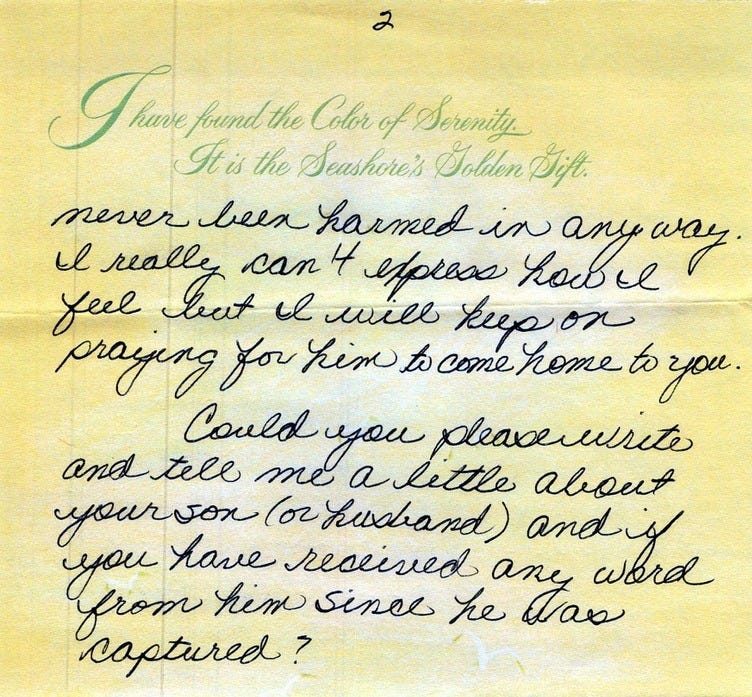 2
I have found the Color of Serenity.
It is the Seashore's Golden Gift.
never been harmed in any way.
I really can't express how I
feel but I will keep on
praying for him to come home to you.
Could you please write
and tell me a little about
your son (or husband) and if
you have received any word
from him since he was
captured?